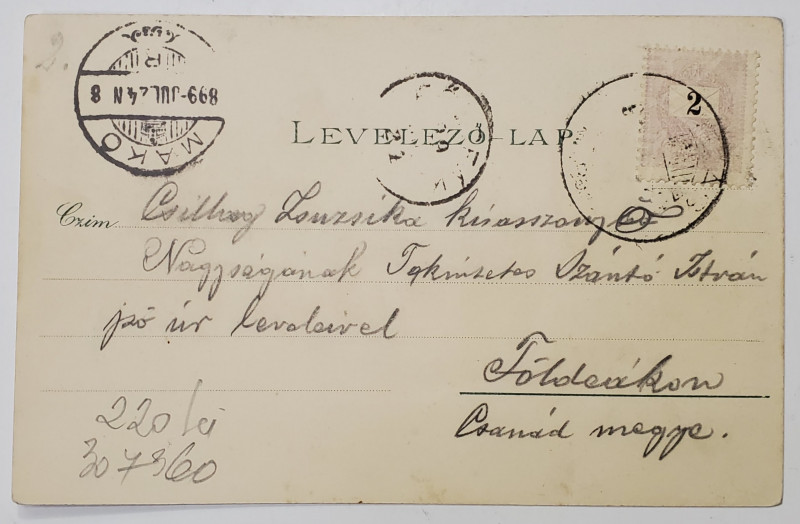 2.
MAKÓ
899-JUL.24 N 8
LEVELEZŐ-LAP
2
Czim Csillag Zsuzsika kisasszony
Nagyságának Tekintetes Szántó István
jző úr leveleivel
Földeákon
Csanád megye.
220 lei
307360